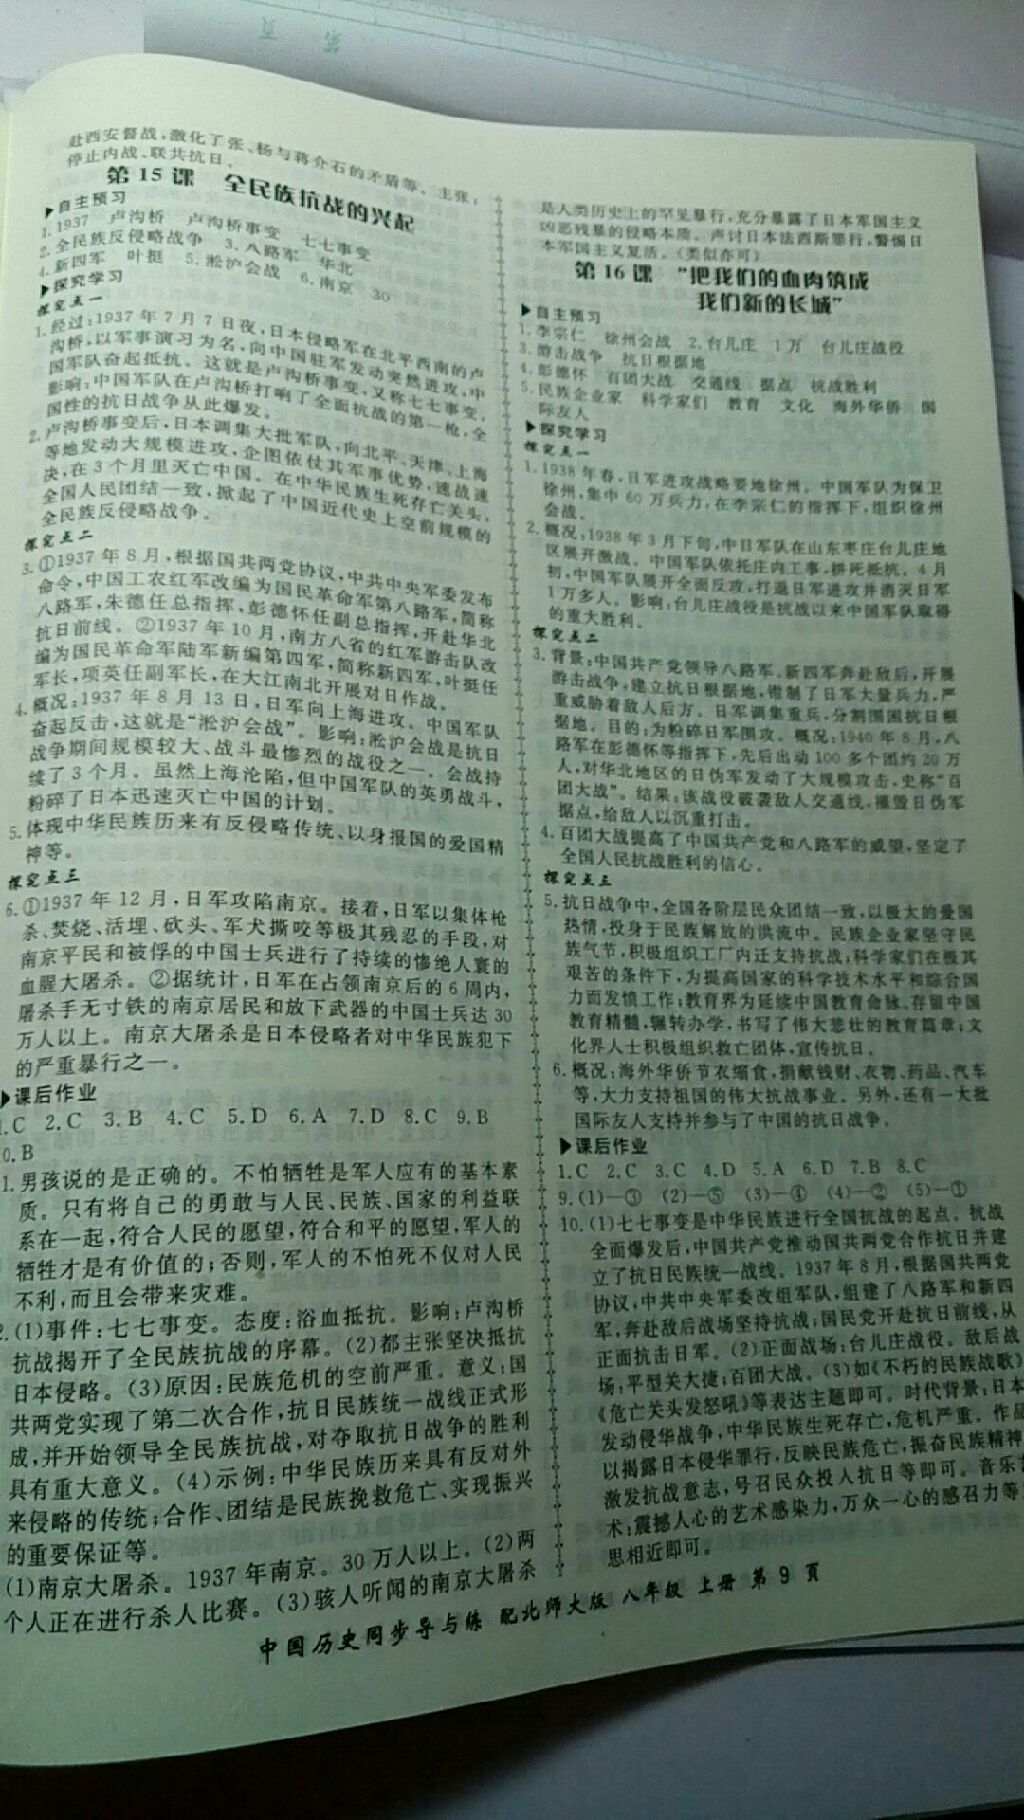 赴西安督战,激化了张、杨与蒋介石的矛盾等。主张:
停止内战、联共抗日。
第15课 全民族抗战的兴起
▶自主预习
1. 1937 卢沟桥 卢沟桥事变 七七事变
2. 全民族反侵略战争 3. 八路军 华北
4. 新四军 叶挺 5. 淞沪会战 6. 南京 30
▶探究学习
探究点一
1. 经过:1937年7月7日夜,日本侵略军在北平西南的卢
沟桥,以军事演习为名,向中国驻军发动突然进攻,中
国军队奋起抵抗。这就是卢沟桥事变,又称七七事变。
影响:中国军队在卢沟桥打响了全面抗战的第一枪,全
国性的抗日战争从此爆发。
2. 卢沟桥事变后,日本调集大批军队,向北平、天津、上海
等地发动大规模进攻,企图依仗其军事优势,速战速
决,在3个月里灭亡中国。在中华民族生死存亡关头,
全国人民团结一致,掀起了中国近代史上空前规模的
全民族反侵略战争。
探究点二
3. ①1937年8月,根据国共两党协议,中共中央军委发布
命令,中国工农红军改编为国民革命军第八路军,简称
八路军,朱德任总指挥,彭德怀任副总指挥,开赴华北
抗日前线。②1937年10月,南方八省的红军游击队改
编为国民革命军陆军新编第四军,简称新四军,叶挺任
军长,项英任副军长,在大江南北开展对日作战。
4. 概况:1937年8月13日,日军向上海进攻。中国军队
奋起反击,这就是“淞沪会战”。影响:淞沪会战是抗日
战争期间规模较大、战斗最惨烈的战役之一。会战持
续了3个月。虽然上海沦陷,但中国军队的英勇战斗,
粉碎了日本迅速灭亡中国的计划。
5. 体现中华民族历来有反侵略传统、以身报国的爱国精
神等。
探究点三
6. ①1937年12月,日军攻陷南京。接着,日军以集体枪
杀、焚烧、活埋、砍头、军犬撕咬等极其残忍的手段,对
南京平民和被俘的中国士兵进行了持续的惨绝人寰的
血腥大屠杀。②据统计,日军在占领南京后的6周内,
屠杀手无寸铁的南京居民和放下武器的中国士兵达30
万人以上。南京大屠杀是日本侵略者对中华民族犯下
的严重暴行之一。
▶课后作业
1. C 2. C 3. B 4. C 5. D 6. A 7. D 8. C 9. B
0. B
1. 男孩说的是正确的。不怕牺牲是军人应有的基本素
质。只有将自己的勇敢与人民、民族、国家的利益联
系在一起,符合人民的愿望,符合和平的愿望,军人的
牺牲才是有价值的;否则,军人的不怕死不仅对人民
不利,而且会带来灾难。
2. (1)事件:七七事变。态度:浴血抵抗。影响:卢沟桥
抗战揭开了全民族抗战的序幕。(2)都主张坚决抵抗
日本侵略。(3)原因:民族危机的空前严重。意义:国
共两党实现了第二次合作,抗日民族统一战线正式形
成,并开始领导全民族抗战,对夺取抗日战争的胜利
具有重大意义。(4)示例:中华民族历来具有反对外
来侵略的传统;合作、团结是民族挽救危亡、实现振兴
的重要保证等。
(1)南京大屠杀。1937年南京。30万人以上。(2)两
个人正在进行杀人比赛。(3)骇人听闻的南京大屠杀
是人类历史上的罕见暴行,充分暴露了日本军国主义
凶恶残暴的侵略本质。声讨日本法西斯罪行,警惕日
本军国主义复活。(类似亦可)
第16课 “把我们的血肉筑成
我们新的长城”
▶自主预习
1. 李宗仁 徐州会战 2. 台儿庄 1万 台儿庄战役
3. 游击战争 抗日根据地
4. 彭德怀 百团大战 交通线 据点 抗战胜利
5. 民族企业家 科学家们 教育 文化 海外华侨 国
际友人
▶探究学习
探究点一
1. 1938年春,日军进攻战略要地徐州。中国军队为保卫
徐州,集中60万兵力,在李宗仁的指挥下,组织徐州
会战。
2. 概况:1938年3月下旬,中日军队在山东枣庄台儿庄地
区展开激战。中国军队依托庄内工事,拼死抵抗。4月
初,中国军队展开全面反攻,打退日军进攻并消灭日军
1万多人。影响:台儿庄战役是抗战以来中国军队取得
的重大胜利。
探究点二
3. 背景:中国共产党领导八路军、新四军奔赴敌后,开展
游击战争,建立抗日根据地,钳制了日军大量兵力,严
重威胁着敌人后方。日军调集重兵,分割围困抗日根
据地。目的:为粉碎日军围攻。概况:1940年8月,八
路军在彭德怀等指挥下,先后出动100多个团约20万
人,对华北地区的日伪军发动了大规模攻击,史称“百
团大战”。结果:该战役破袭敌人交通线,摧毁日伪军
据点,给敌人以沉重打击。
4. 百团大战提高了中国共产党和八路军的威望,坚定了
全国人民抗战胜利的信心。
探究点三
5. 抗日战争中,全国各阶层民众团结一致,以极大的爱国
热情,投身于民族解放的洪流中。民族企业家坚守民
族气节,积极组织工厂内迁支持抗战;科学家们在极其
艰苦的条件下,为提高国家的科学技术水平和综合国
力而发愤工作;教育界为延续中国教育命脉、存留中国
教育精髓,辗转办学,书写了伟大悲壮的教育篇章;文
化界人士积极组织救亡团体,宣传抗日。
6. 概况:海外华侨节衣缩食,捐献钱财、衣物、药品、汽车
等,大力支持祖国的伟大抗战事业。另外,还有一大批
国际友人支持并参与了中国的抗日战争。
▶课后作业
1. C 2. C 3. C 4. D 5. A 6. D 7. B 8. C
9. (1)—③ (2)—⑤ (3)—④ (4)—② (5)—①
10. (1)七七事变是中华民族进行全国抗战的起点。抗战
全面爆发后,中国共产党推动国共两党合作抗日并建
立了抗日民族统一战线。1937年8月,根据国共两党
协议,中共中央军委改组军队,组建了八路军和新四
军,奔赴敌后战场坚持抗战;国民党开赴抗日前线,从
正面抗击日军。(2)正面战场:台儿庄战役。敌后战
场:平型关大捷;百团大战。(3)如《不朽的民族战歌》
《危亡关头发怒吼》等表达主题即可。时代背景:日本
发动侵华战争,中华民族生死存亡,危机严重。作品
以揭露日本侵华罪行,反映民族危亡,振奋民族精神
激发抗战意志,号召民众投入抗日等即可。音乐艺
术:震撼人心的艺术感染力,万众一心的感召力等
思相近即可。
中国历史同步导与练 配北师大版 八年级 上册 第9页